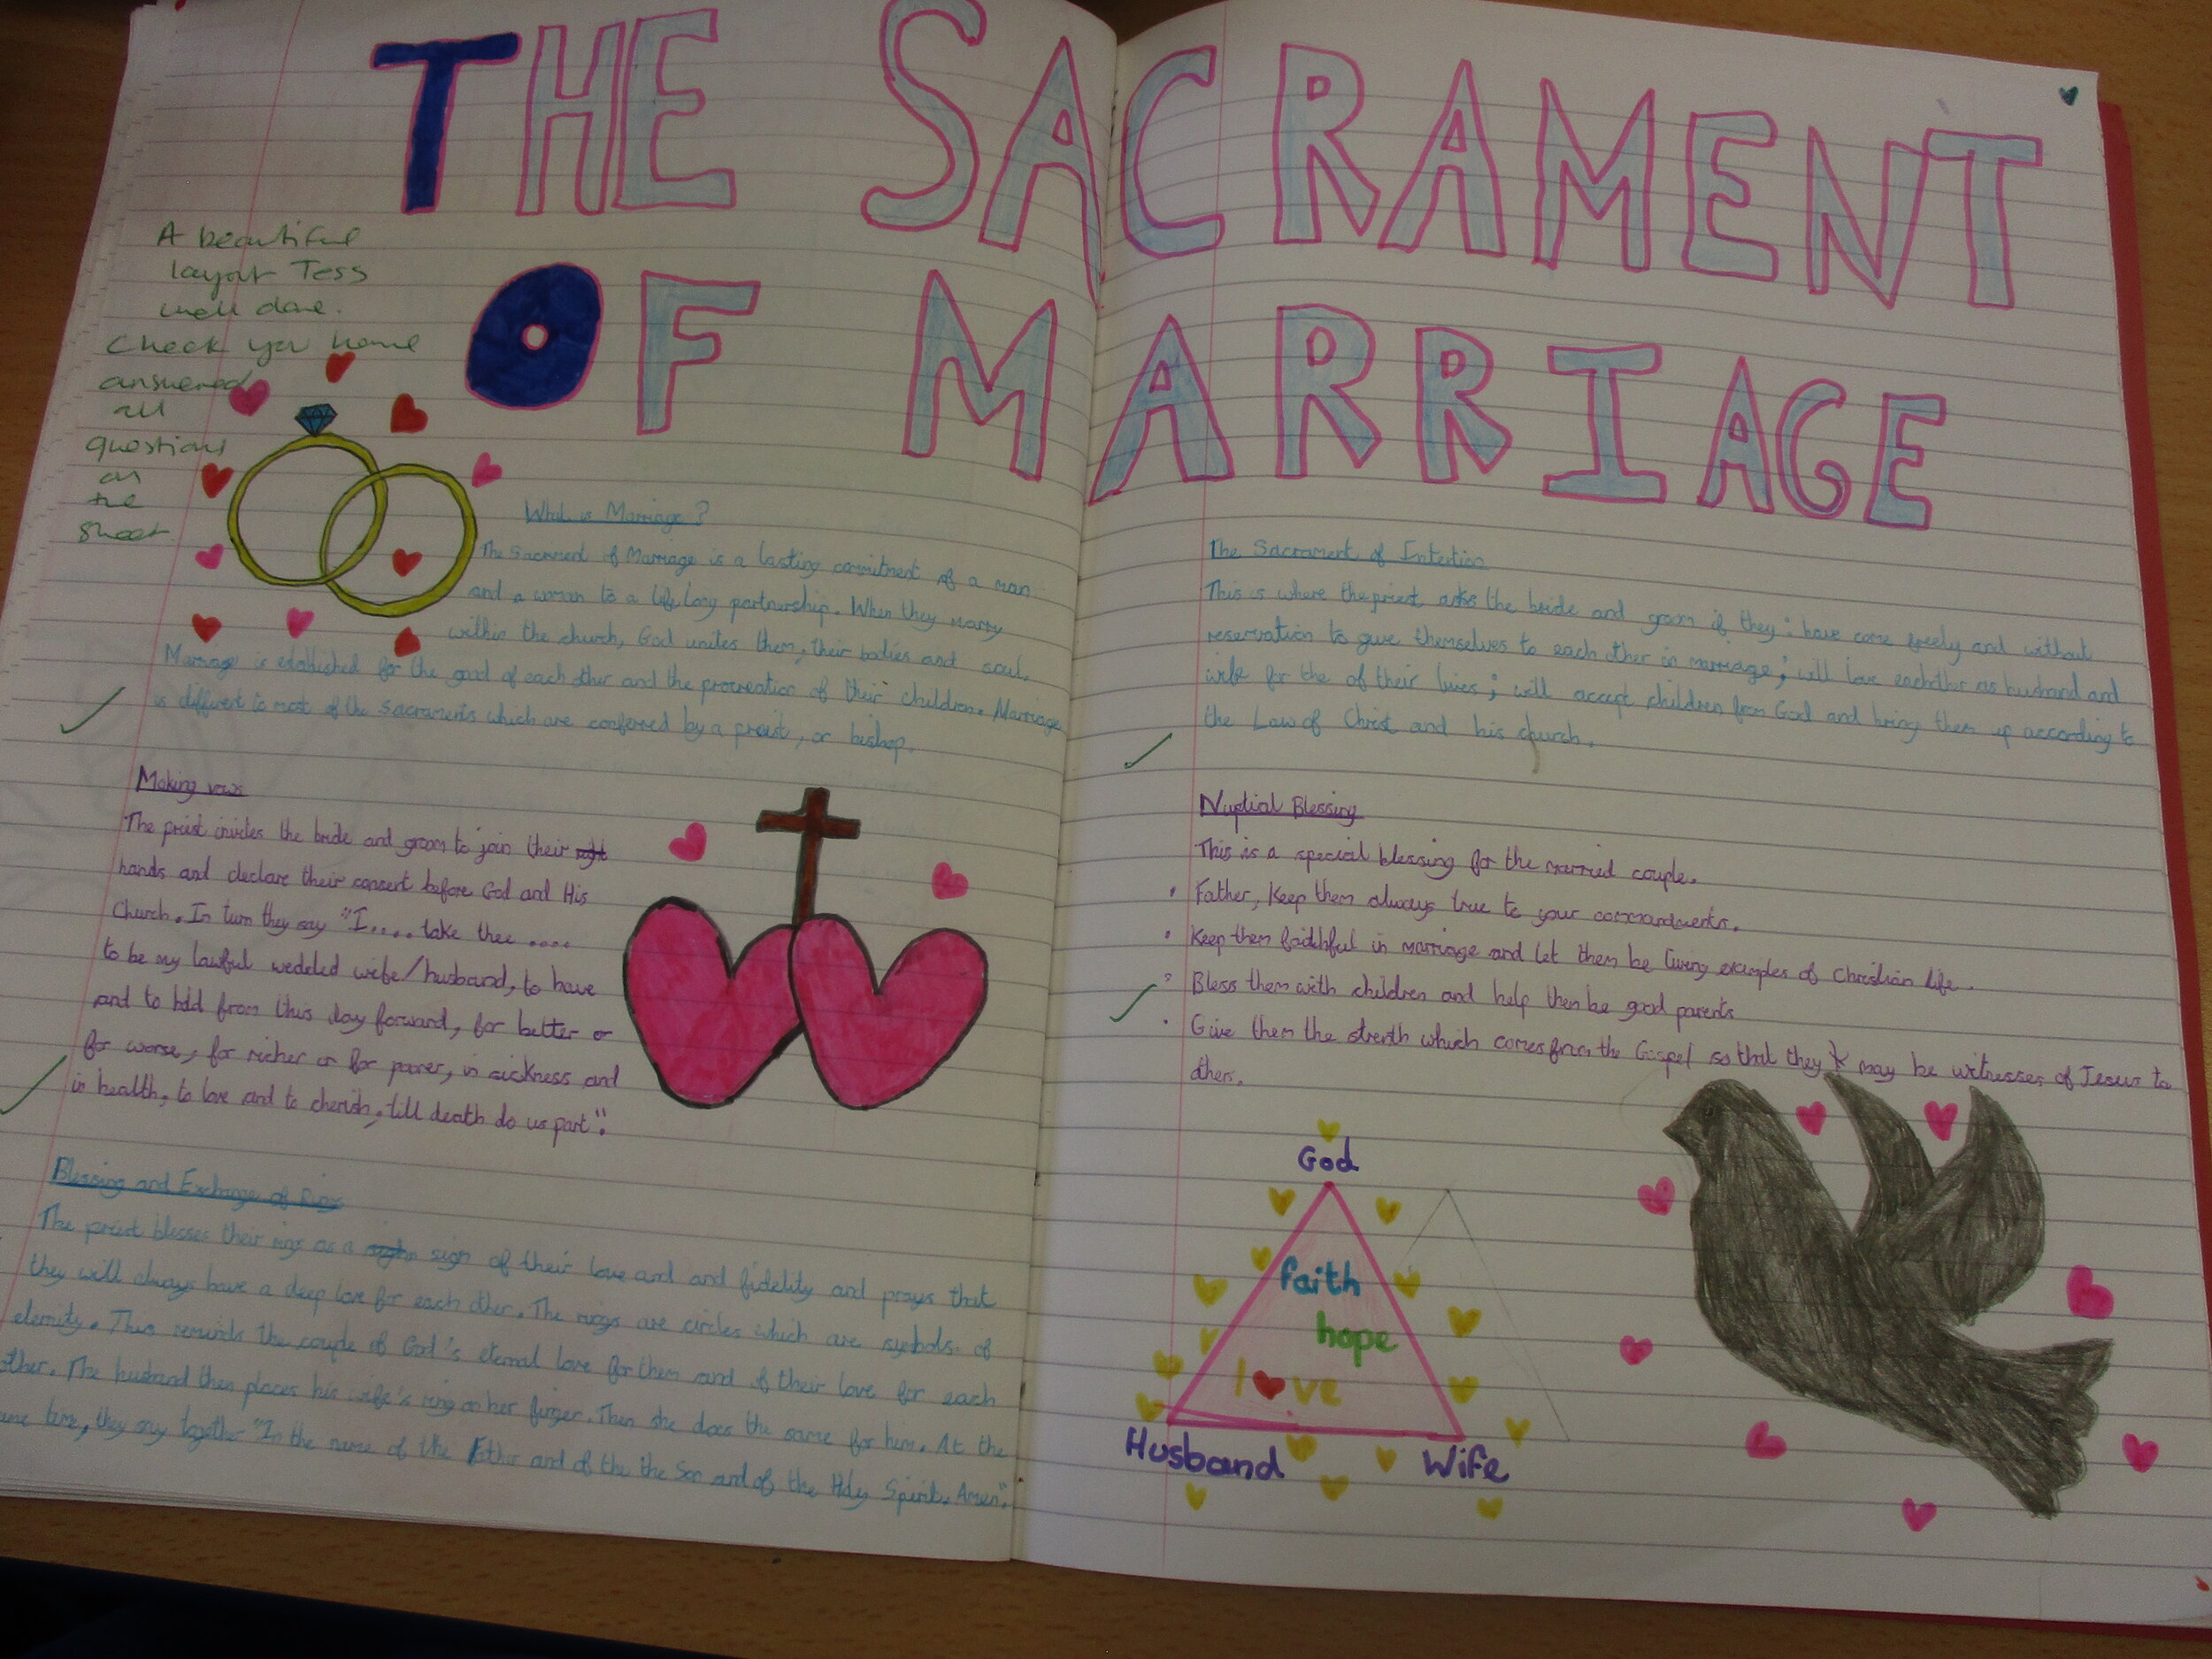 THE SACRAMENT
OF MARRIAGE
A beautiful
layout Tess
well done.
Check you have
answered
all
questions
on
the
sheet.
What is Marriage?
The Sacrament of Marriage is a lasting commitment of a man
and a woman to a life long partnership. When they marry
within the church, God unites them, their bodies and soul.
Marriage is established for the good of each other and the procreation of their children. Marriage
is different to most of the Sacraments which are conferred by a preist, or bishop.
Making vows
The preist invites the bride and groom to join their right
hands and declare their consent before God and His
Church. In turn they say "I.... take thee ....
to be my lawful wedded wife/husband, to have
and to hold from this day forward, for better or
for worse, for richer or for poorer, in sickness and
in health, to love and to cherish, till death do us part".
Blessing and Exchange of Rings
The preist blesses their rings as a sign of their love and and fidelity and prays that
they will always have a deep love for each other. The rings are circles which are symbols of
eternity. This reminds the couple of God's eternal love for them and of their love for each
other. The husband then places his wife's ring on her finger. Then she does the same for him. At the
same time, they say together "In the name of the Father and of the the Son and of the Holy Spirit. Amen".
The Sacrament of Intention
This is where the preist asks the bride and groom if they: have come freely and without
reservation to give themselves to each other in marriage; will love eachother as husband and
wife for the of their lives; will accept children from God and bring them up according to
the Law of Christ and his church.
Nuptial Blessing
This is a special blessing for the married couple.
• Father, Keep them always true to your commandments.
• Keep them faithful in marriage and let them be living examples of Christian life.
• Bless them with children and help them be good parents
• Give them the strenth which comes from the Gospel so that they may be witnesses of Jesus to
others.
God
faith
hope
l❤ve
Husband Wife